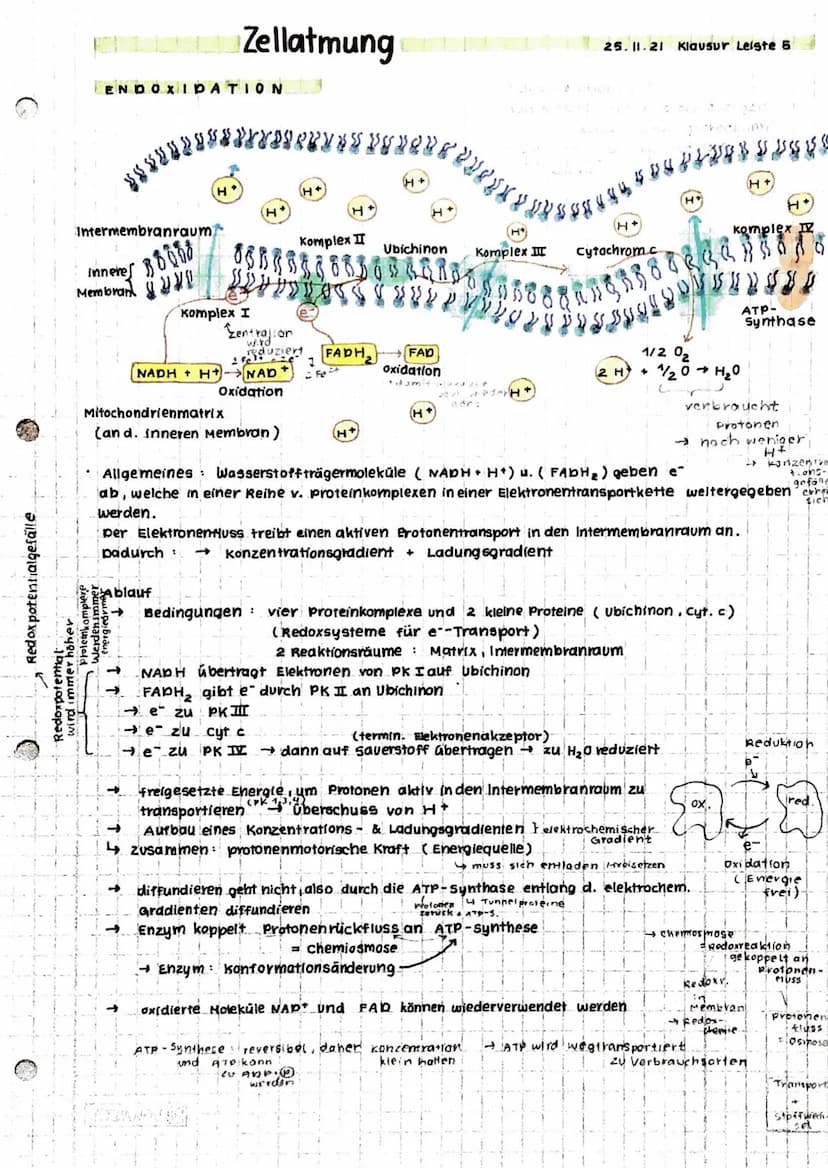 Zellatmung
25.11.21 Klausur Leiste 6
ENDOXIDATION
H+
H+
H+
H+
H+
H+
H+
H+
H+
H+
H+
Intermembranraum
Komplex II
Ubichinon
Komplex III
Cytochrom c
Komplex IV
Inneres
Membran
e-
e-
Komplex I
ATP-
Synthase
Zentralion
wird
reduziert
NADH + H+ → NAD+
FADH2 → FAD
Oxidation
Oxidation
1/2 O2
2 H+ + 1/2 O → H2O
H+
H+
H+
verbraucht
Protonen
→ noch weniger
H+
Mitochondrienmatrix
(an d. inneren Membran)
· Allgemeines : Wasserstoffträgermoleküle ( NADH + H+) u. ( FADH2 ) geben e-
ab, welche in einer Reihe v. Proteinkomplexen in einer Elektronentransportkette weitergegeben
werden.
Der Elektronenfluss treibt einen aktiven Protonentransport in den Intermembranraum an.
Dadurch : → Konzentrationsgradient + Ladungsgradient
Ablauf
→ Bedingungen : vier Proteinkomplexe und 2 kleine Proteine ( Ubichinon, Cyt. c)
(Redoxsysteme für e--Transport)
2 Reaktionsräume : Matrix, Intermembranraum
→ NADH überträgt Elektronen von PK I auf Ubichinon
→ FADH2 gibt e- durch PK II an Ubichinon
→ e- zu PK III
→ e- zu cyt c
(termin. Elektronenakzeptor)
→ e- zu PK IV → dann auf Sauerstoff übertragen → zu H2O reduziert
Redoxpotentialgefälle
Redoxpotential
wird immer höher
Proteinkomplexe
werden immer
energieärmer
→ freigesetzte Energie, um Protonen aktiv in den Intermembranraum zu
transportieren (PK 1,3,4) → Überschuss von H+
→ Aufbau eines Konzentrations- & Ladungsgradienten } elektrochemischer
Gradient
↳ zusammen: protonenmotorische Kraft ( Energiequelle)
↳ muss sich entladen
→ diffundieren geht nicht, also durch die ATP-Synthase entlang d. elektrochem.
Gradienten diffundieren
Protonen
zurück
↳ Tunnelproteine
→ Enzym koppelt Protonenrückfluss an ATP-Synthese
= Chemiosmose
→ Enzym: Konformationsänderung
→ oxidierte Moleküle NAD+ und FAD können wiederverwendet werden
ATP-Synthese : reversibel, daher Konzentration
und ATP kann
zu ADP + P
werden
klein halten
→ ATP wird wegtransportiert
zu Verbrauchsorten
Reduktion
e-
ox.
red.
e-
Oxidation
( Energie
frei)
→ Chemiosmose
= Redoxreaktion
gekoppelt an
Protonen-
fluss
Redoxr.
in
Membran
→ Redox-
chemie
Protonen
fluss
= Osmose
Transport
+
Stoffwech-
sel